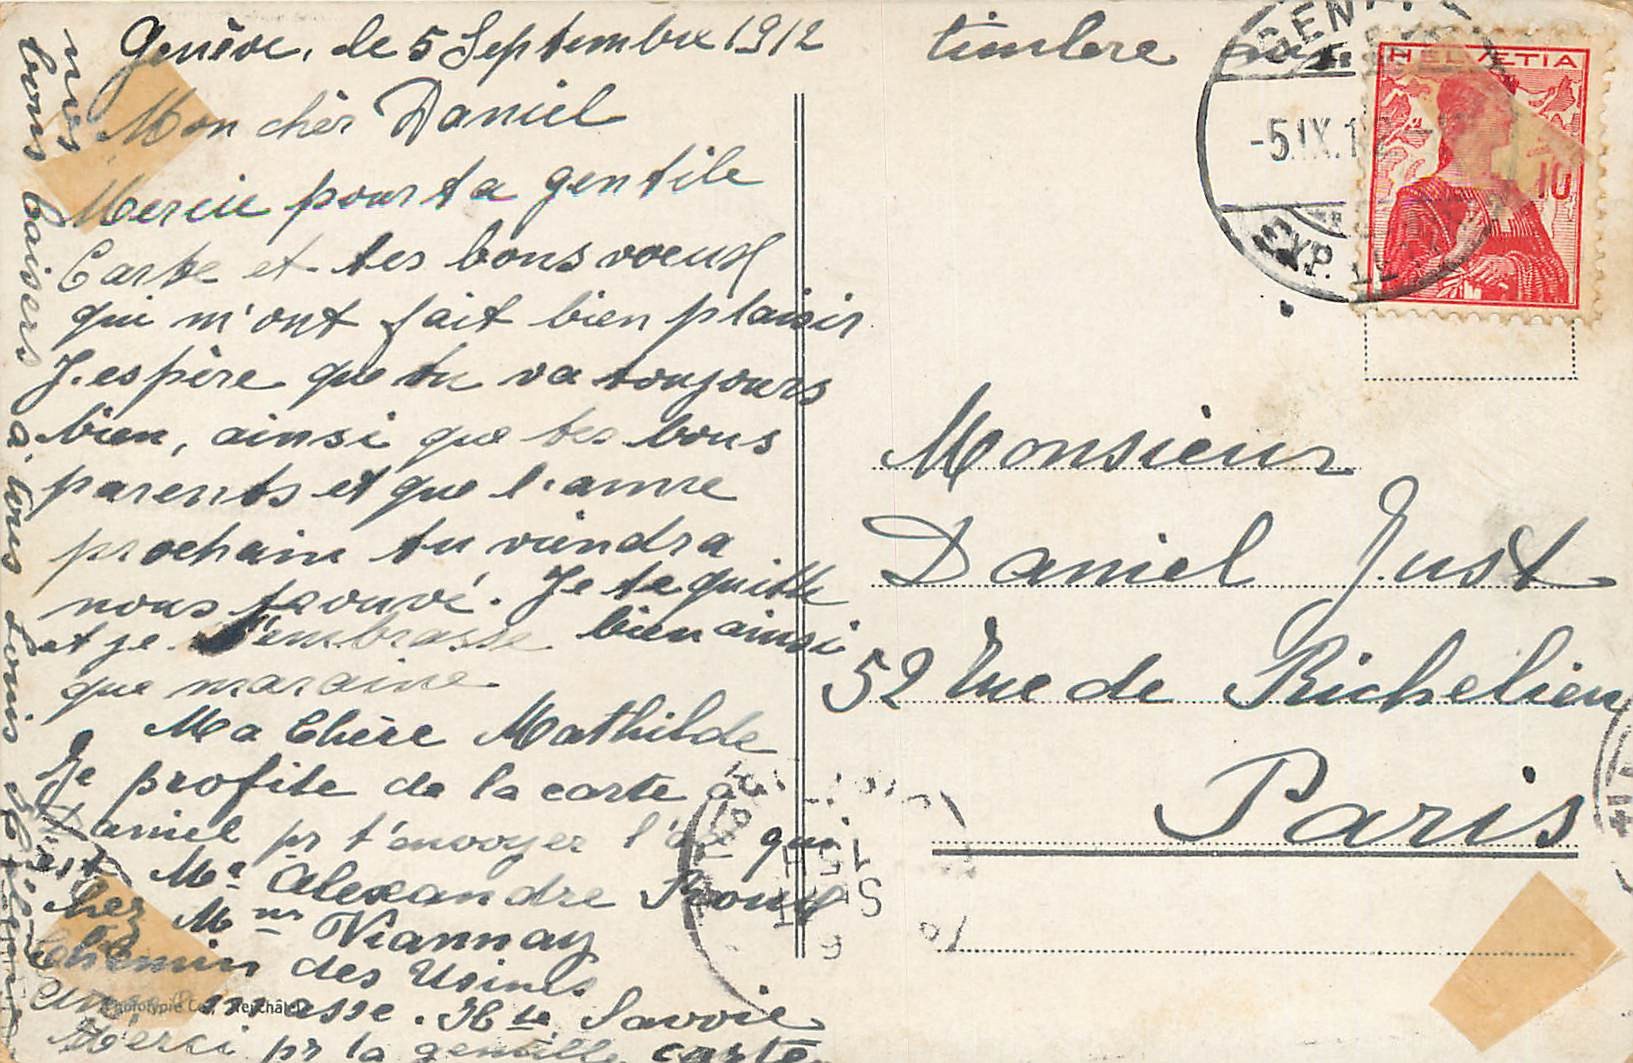 Genève, le 5 Septembre 1912
Mon chèr Daniel
Mercie pour ta gentile
Carte et tes bons voeux
qui m'ont fait bien plaisir
J.espère que tu va toujours
bien, ainsi que tes bons
parents et que l.anné
prochaine tu viendra
nous trouvé. Je te quitte
et je t'embrasse bien ainsi
que maraine
Ma Chère Mathilde
Je profite de la carte à
Daniel pr t'envoyer l'ad. qui
est Mr Alexandre
chez Mme Viannay
Chemin des Usines
Annemasse. Hte Savoie
Merci pr la gentille carte
mes
bons baisers à tous Louis
Phototypie Co., Neuchâtel
timbre
HELVETIA
10
-5.IX.12
EXP. LE
Monsieur
Daniel Just
52 Rue de Richelieu
Paris